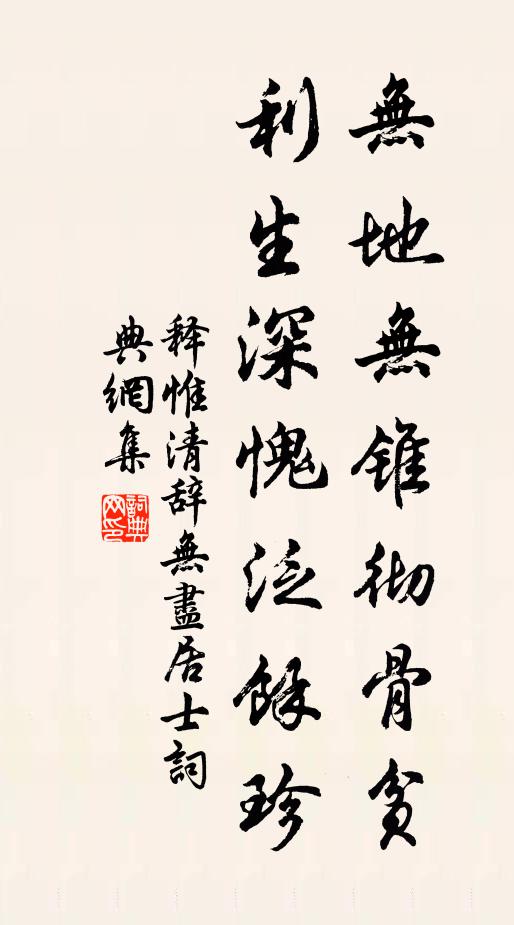 無地無錐彻骨貧
利生深愧泛餘珍
释惟清辞無盡居士詞
典網集
詞典网印